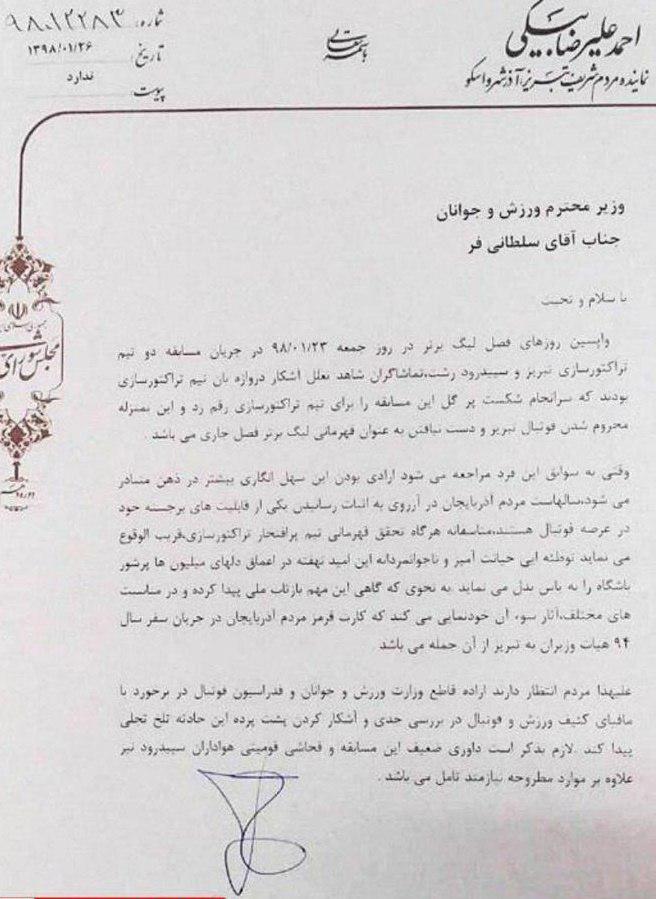 احمد علیرضا بیگی
نماینده مردم شریف تبریز، آذرشهر و اسکو
باسمه تعالی
شماره: ۹۸،۱۲۲۸۳
تاریخ: ۱۳۹۸/۰۱/۲۶
پیوست: ندارد
مجلس شورای
وزیر محترم ورزش و جوانان
جناب آقای سلطانی فر
با سلام و تحیت
واپسین روزهای فصل لیگ برتر در روز جمعه ۹۸/۰۱/۲۳ در جریان مسابقه دو تیم
تراکتورسازی تبریز و سپیدرود رشت،تماشاگران شاهد تعلل آشکار دروازه بان تیم تراکتورسازی
بودند که سرانجام شکست پر گل این مسابقه را برای تیم تراکتورسازی رقم زد و این بمنزله
محروم شدن فوتبال تبریز و دست نیافتن به عنوان قهرمانی لیگ برتر فصل جاری می باشد .
وقتی به سوابق این فرد مراجعه می شود ارادی بودن این سهل انگاری بیشتر در ذهن متبادر
می شود،سالهاست مردم آذربایجان در آرزوی به اثبات رسانیدن یکی از قابلیت های برجسته خود
در عرصه فوتبال هستند،متاسفانه هرگاه تحقق قهرمانی تیم پرافتخار تراکتورسازی،قریب الوقوع
می نماید توطئه ایی خیانت آمیز و ناجوانمردانه این امید نهفته در اعماق دلهای میلیون ها پرشور
باشگاه را به یاس بدل می نماید به نحوی که گاهی این مهم بازتاب ملی پیدا کرده و در مناسبت
های مختلف،آثار سوء آن خودنمایی می کند که کارت قرمز مردم آذربایجان در جریان سفر سال
۹۴ هیات وزیران به تبریز از آن جمله می باشد
علیهذا مردم انتظار دارند اراده قاطع وزارت ورزش و جوانان و فدراسیون فوتبال در برخورد با
مافیای کثیف ورزش و فوتبال در بررسی جدی و آشکار کردن پشت پرده این حادثه تلخ تجلی
پیدا کند .لازم بذکر است داوری ضعیف این مسابقه و فحاشی قومیتی هواداران سپیدرود نیز
علاوه بر موارد مطروحه نیازمند تامل می باشد .